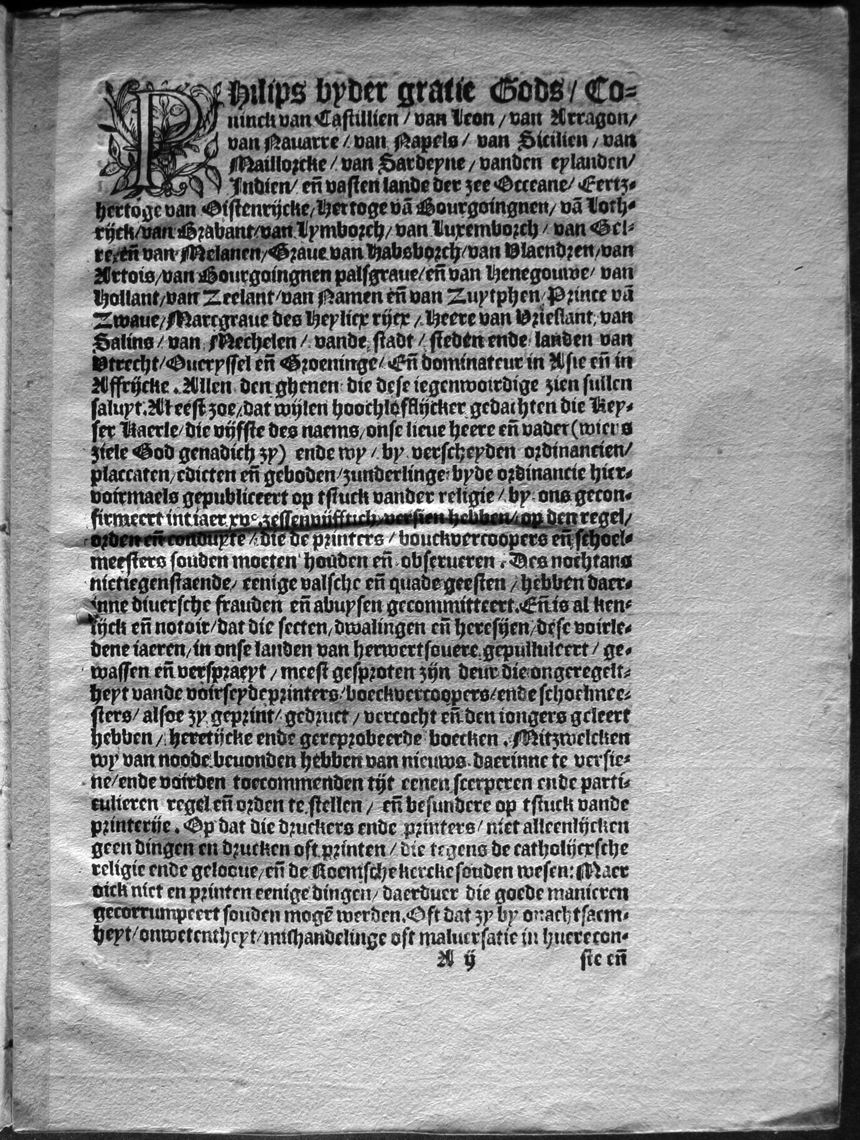 PHilips byder gratie Gods / Co=
ninck van Castillien / van Leon / van Arragon/
van Nauarre / van Napels / van Sicilien / van
Maillorcke / van Sardeyne / vanden eylanden/
Indien / eñ vasten lande der zee Occeane/ Eertz-
hertoge van Oistenrijcke/Hertoge vã Bourgoingnen/ vã Loth-
rijck/van Brabant/van Lymborch / van Luxemborch / van Gel-
re/eñ van Melanen/Graue van Habsborch/van Vlaendren/van
Artois/van Bourgoingnen palsgraue/eñ van Henegouwe/ van
Hollant/van Zeelant/van Namen eñ van Zuytphen/Prince vã
Zwaue/Marcgraue des Heylicx rijcx / Heere van Vrieslant/ van
Salins / van Mechelen / vande stadt / steden ende landen van
Vtrecht/Oueryssel eñ Groeninge/ Eñ dominateur in Asie eñ in
Affrijcke . Allen den ghenen die dese iegenwoirdige zien sullen
saluyt. Alleest zoe/dat wijlen hoochloflijcker gedachten die Key-
ser Kaerle/die vijfste des naems/onse lieue heere eñ vader (wiens
ziele God genadich zy) ende wy / by verscheyden ordinancien/
placcaten/edicten eñ geboden/zunderlinge byde ordinancie hier-
voirmaels gepubliceert op tstuck vander religie / by ons gecon-
firmeert int iaer xvᶜ. zessenvijfftich versien hebben/ op den regel/
orden eñ conduyte / die de printers / bouckvercoopers eñ schoel-
meesters souden moeten houden eñ obserueren . Des nochtans
nietiegenstaende/ eenige valsche eñ quade geesten / hebben daer-
inne diuersche frauden eñ abuysen gecommitteert. Eñ is al ken-
lijck eñ notoir/dat die secten/dwalingen eñ heresijen/dese voirle-
dene iaeren/in onse landen van herwertsouere gepulluleert / ge-
wassen eñ verspraeyt / meest gesproten zijn deur die ongeregelt-
heyt vande voirseyde printers/boeckvercoopers/ende schoelmee-
sters/ alsoe zy geprint/ gedruct / vercocht eñ den iongers geleert
hebben / heretijcke ende gereprobeerde boecken . Mitzwelcken
wy van noode beuonden hebben van nieuws daerinne te versie-
ne/ende voirden toecommenden tijt eenen scerperen ende parti-
culieren regel eñ orden te stellen / eñ besundere op tstuck vande
printerije . Op dat die druckers ende printers/ niet alleenlijcken
geen dingen en drucken oft printen / die tegens de catholijcksche
religie ende geloque/eñ de Roemsche kercke souden wesen: Maer
oick niet en printen eenige dingen/ daerduer die goede manieren
gecorrumpeert souden mogẽ werden. Oft dat zy by onachtsaem-
heyt/onwetentheyt/mishandelinge oft maluersatie in huere con-
A ij
ste eñ